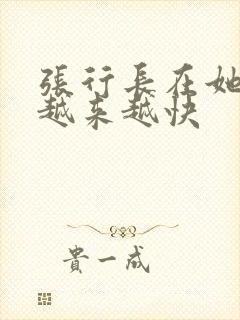 張行長在她
越来越快
貴一成